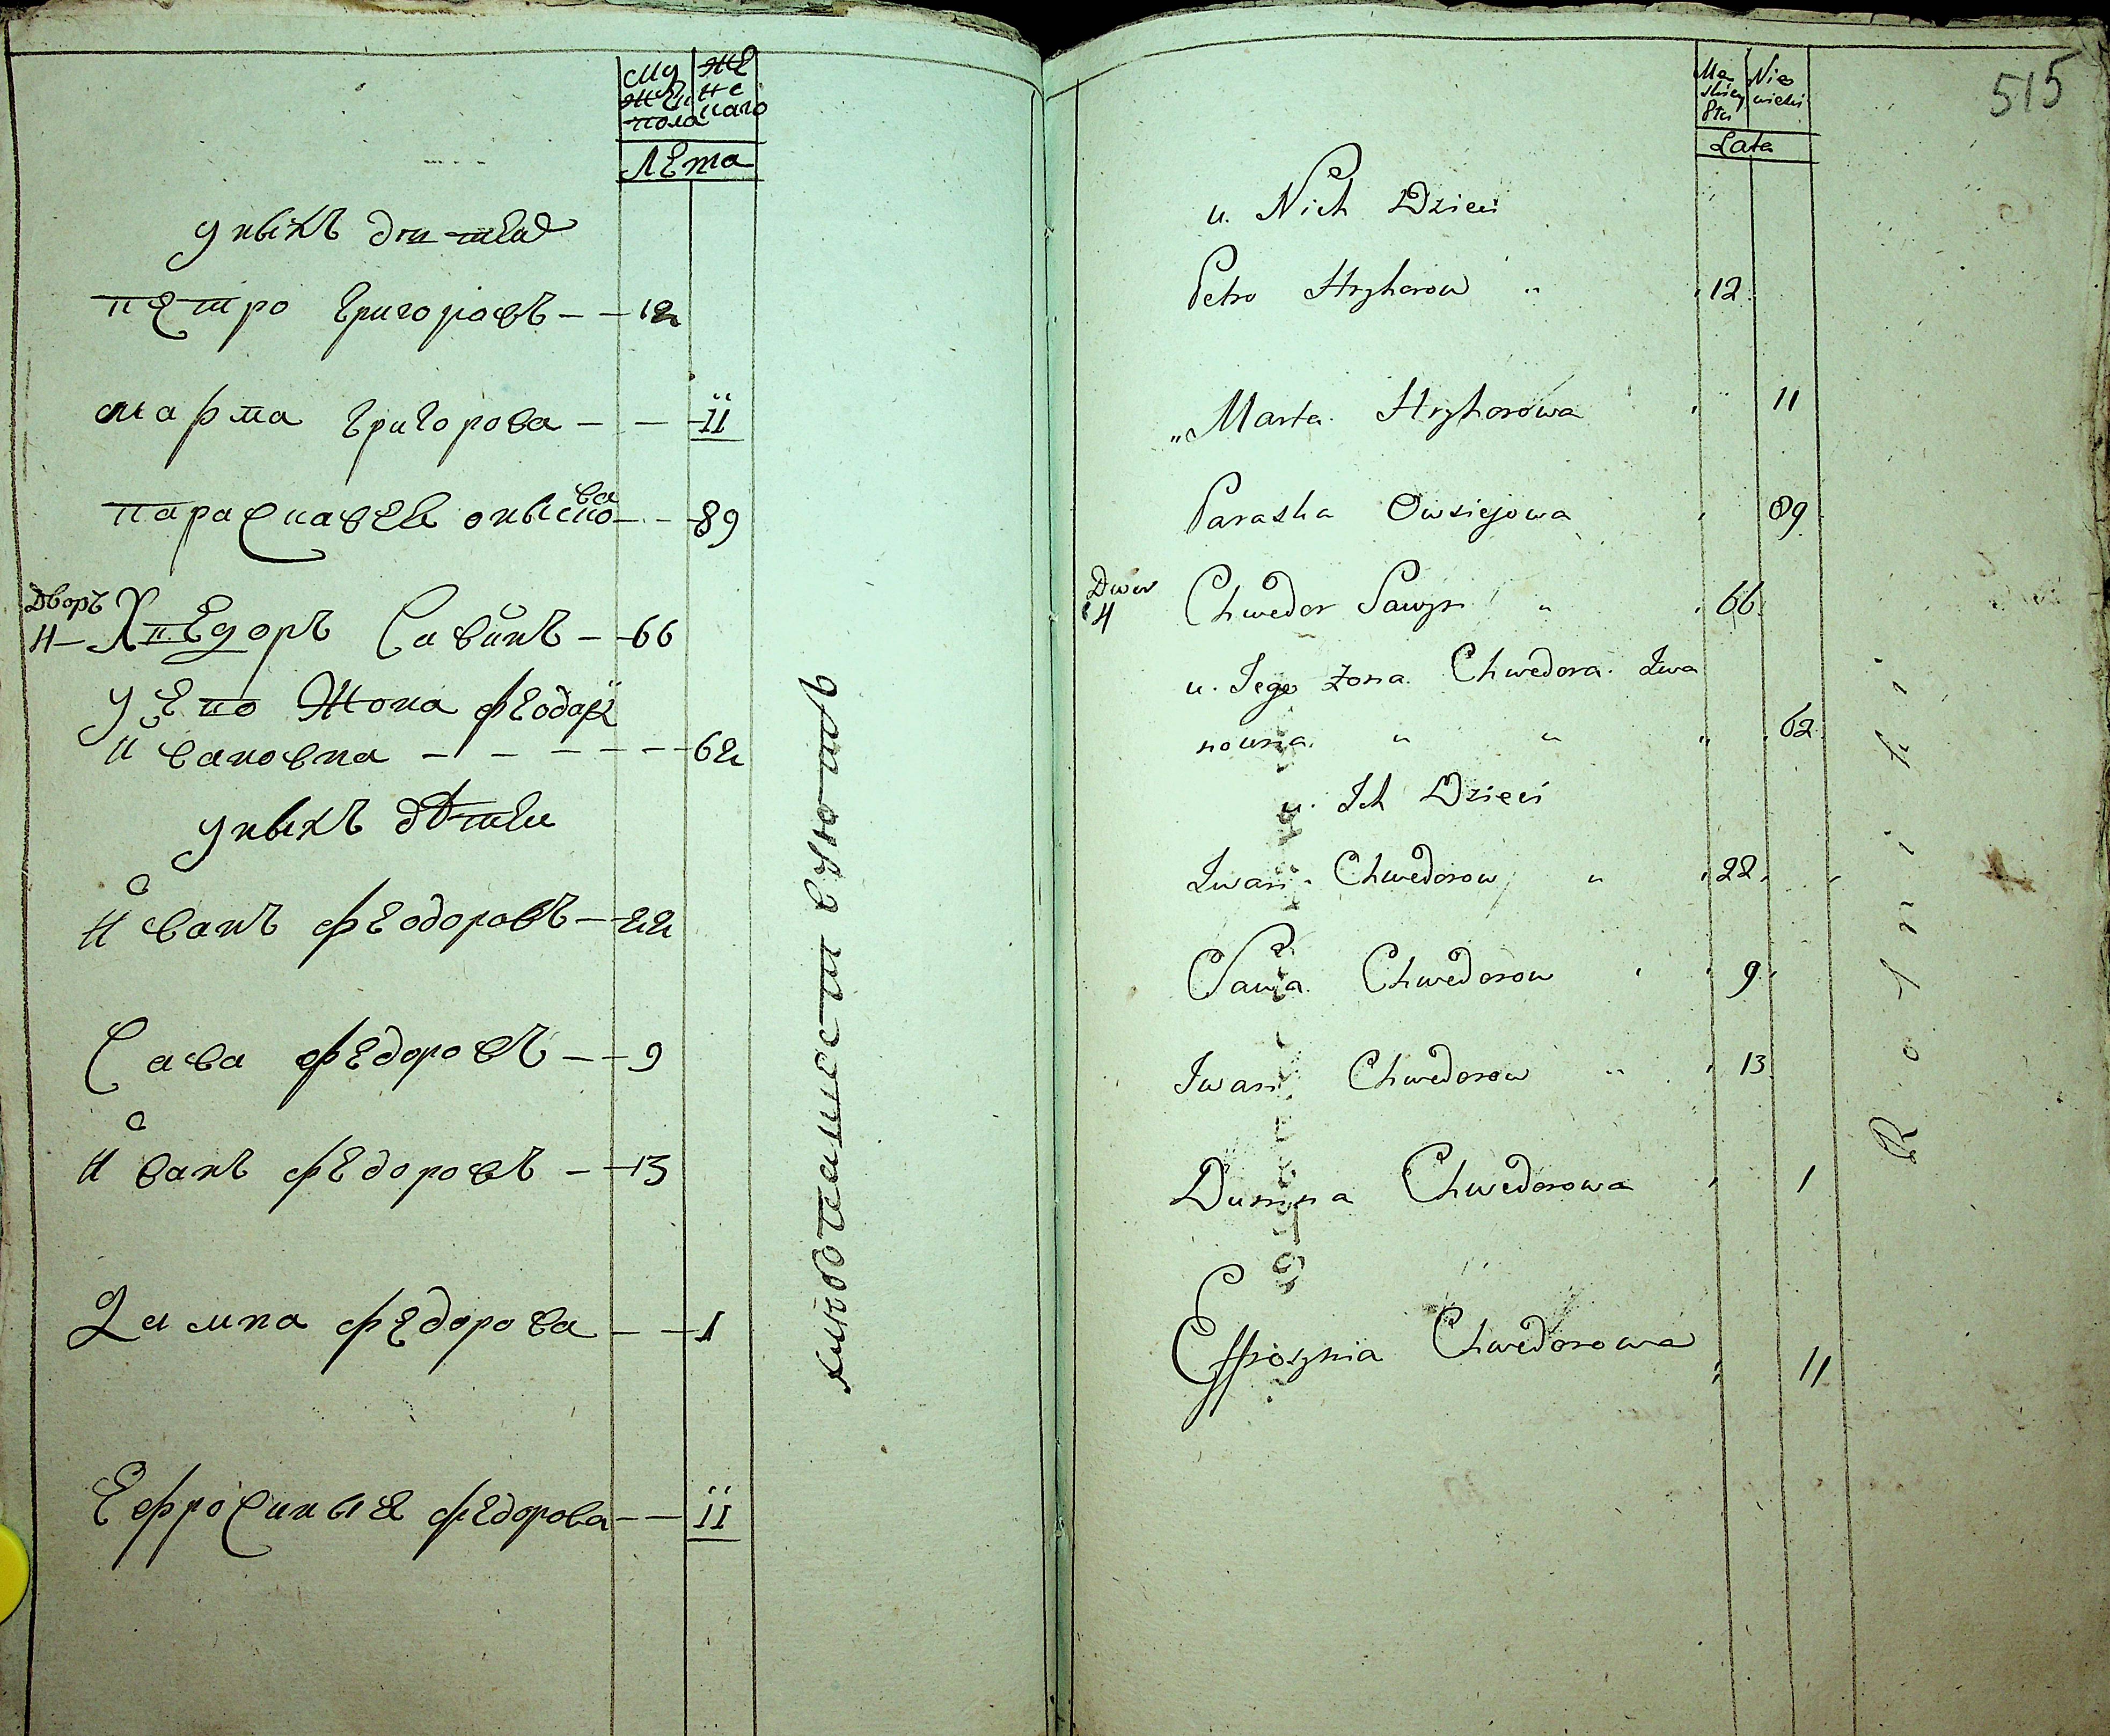 Мужска пола Женскаго
Лета
у ныхъ дитей
петро Григоровъ - - 12
марта Григорова - - 11
- - 89
Дворъ
4 - Хведоръ Савинъ - - 66
у его жона феодора
Ивановна - - - - 62
у ныхъ дѣтеи
Иванъ феодоровъ - - 22
Сава федоровъ - - 9
Иванъ федоровъ - - 13
Димна федорова - - 1
Ефросиныя федорова - - 11
515
Męskiey Płci Niewieści
Lata
u. Nich Dzieci
Petro Hryhorow " 12
"Marta Hryhorowa 11
Paraska Owsiejowa 89
Dwor
4 Chwedor Sawyn " 66
u. Jego Żona Chwedora Iwa
nowna " " " 62
u. Ich Dzieci
Iwan Chwedorow " 22
Sawa Chwedorow 9
Iwan Chwedorow " 13
Dumna Chwedorowa 1
Effrosynia Chwedorowa 11
Rolniki